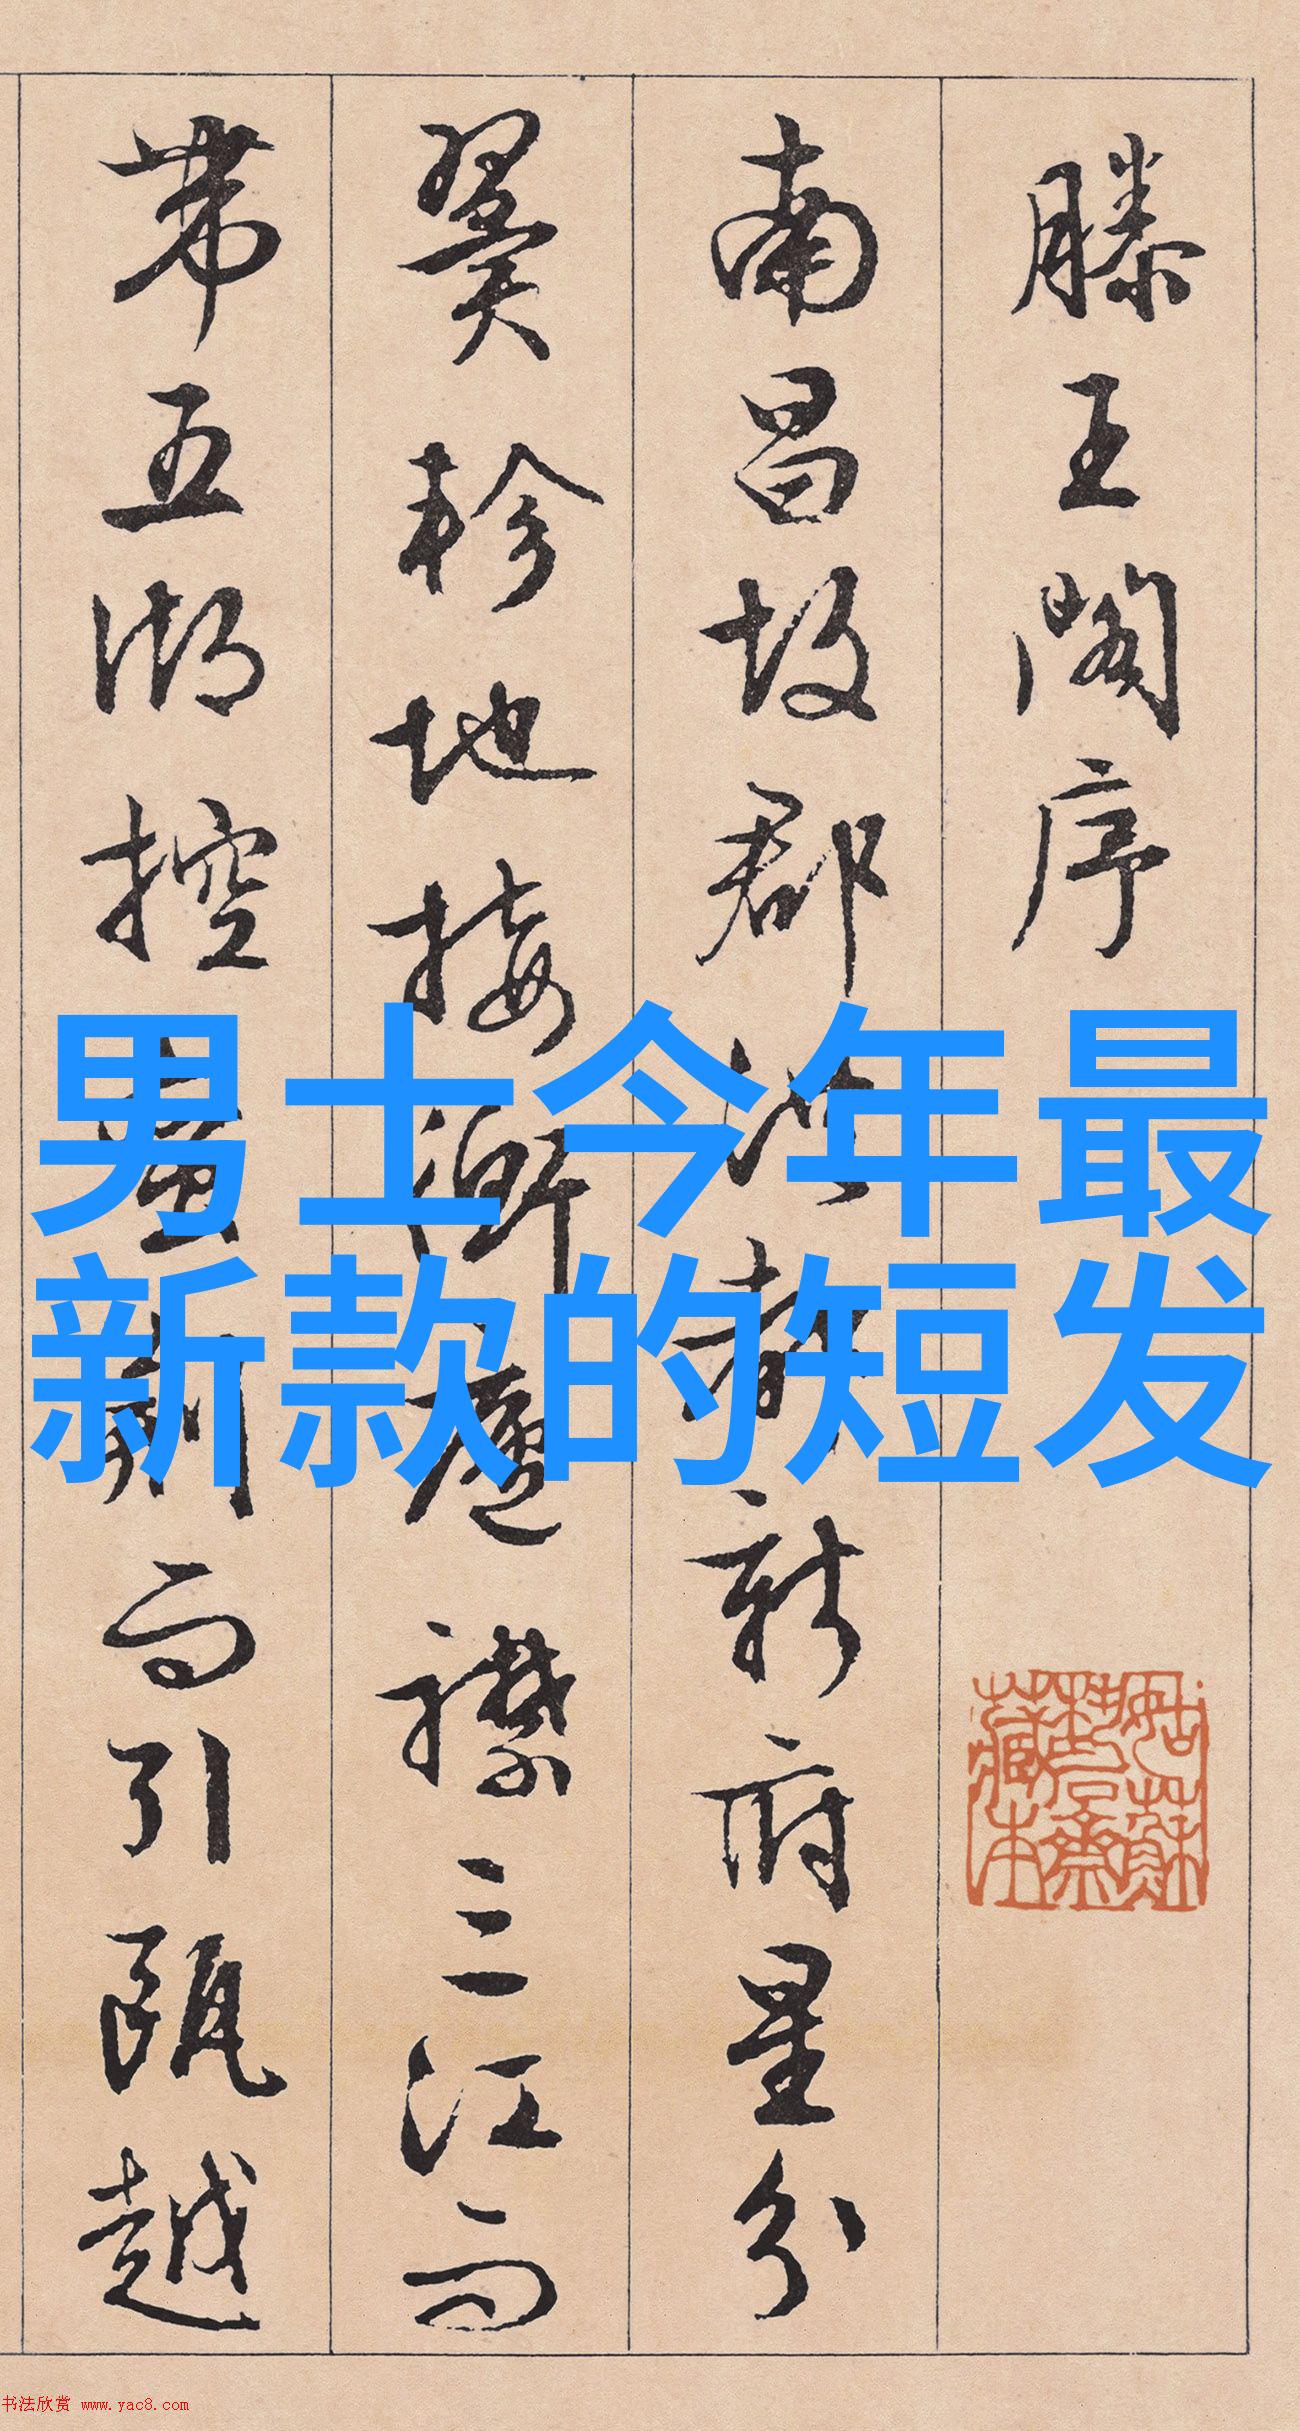 滕王閣序
南昌故郡洪都新府星分
翼軫地接衡廬襟三江而
帶五湖控蠻荊而引甌越
男士今年最
新款的短发
书法欣赏 www.yac8.com